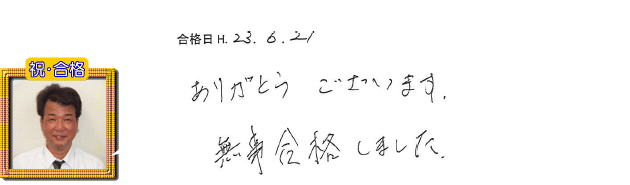 合格日 H. 23. 6. 21
祝・合格
ありがとう ございます.
無事合格しました.